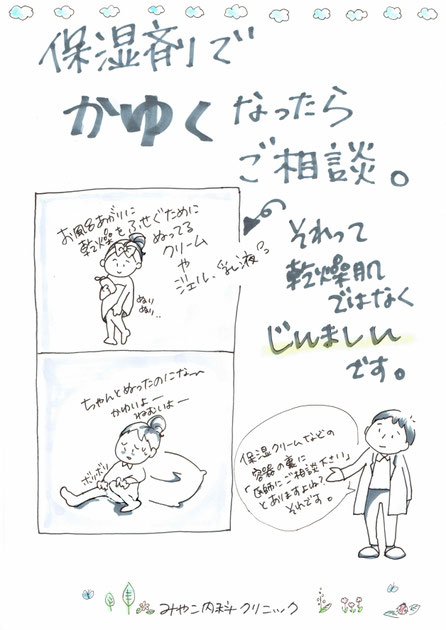 保湿剤で
かゆく なったら
ご相談。
お風呂あがりに
乾燥をふせぐために
ぬってる
クリーム
や
ジェル、乳液
ぬり
ぬり..
それって
乾燥肌
ではなく
じんましん
です。
ちゃんとぬったのにな〜
かゆいよー
ねむいよー
ボリボリ
保湿クリームなどの
容器の裏に
「医師にご相談下さい」
とありますよね?
それです。
みやこ内科クリニック